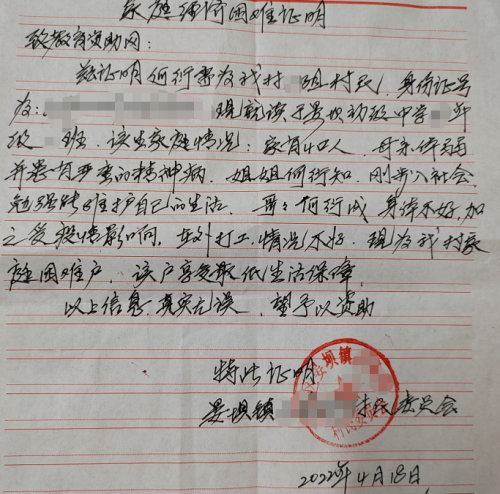 家庭经济困难证明
致教育资助网：
兹证明何衍春为我村 组村民，身份证号
为： 现就读于晏坝初级中学 年
级 班，该生家庭情况：家有四口人，母亲体弱
并患有严重的精神病，姐姐何衍知，刚步入社会，
勉强能维护自己的生活，哥哥何衍成，身体不好，加
之受疫情影响，在外打工，情况不好，现为我村家
庭困难户，该户享受最低生活保障。
以上信息，真实无误，望予以资助
特此证明
晏坝镇 村民委员会
2022年4月18日